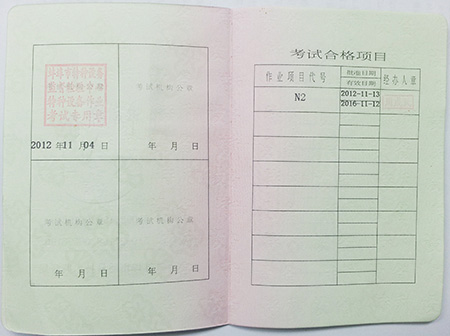 考试机构公章
2012 年 11 月 04 日
年 月 日
考试机构公章
考试机构公章
年 月 日
年 月 日
考试合格项目
作业项目代号
批准日期
有效日期
经办人章
N2
2012-11-13
2016-11-12